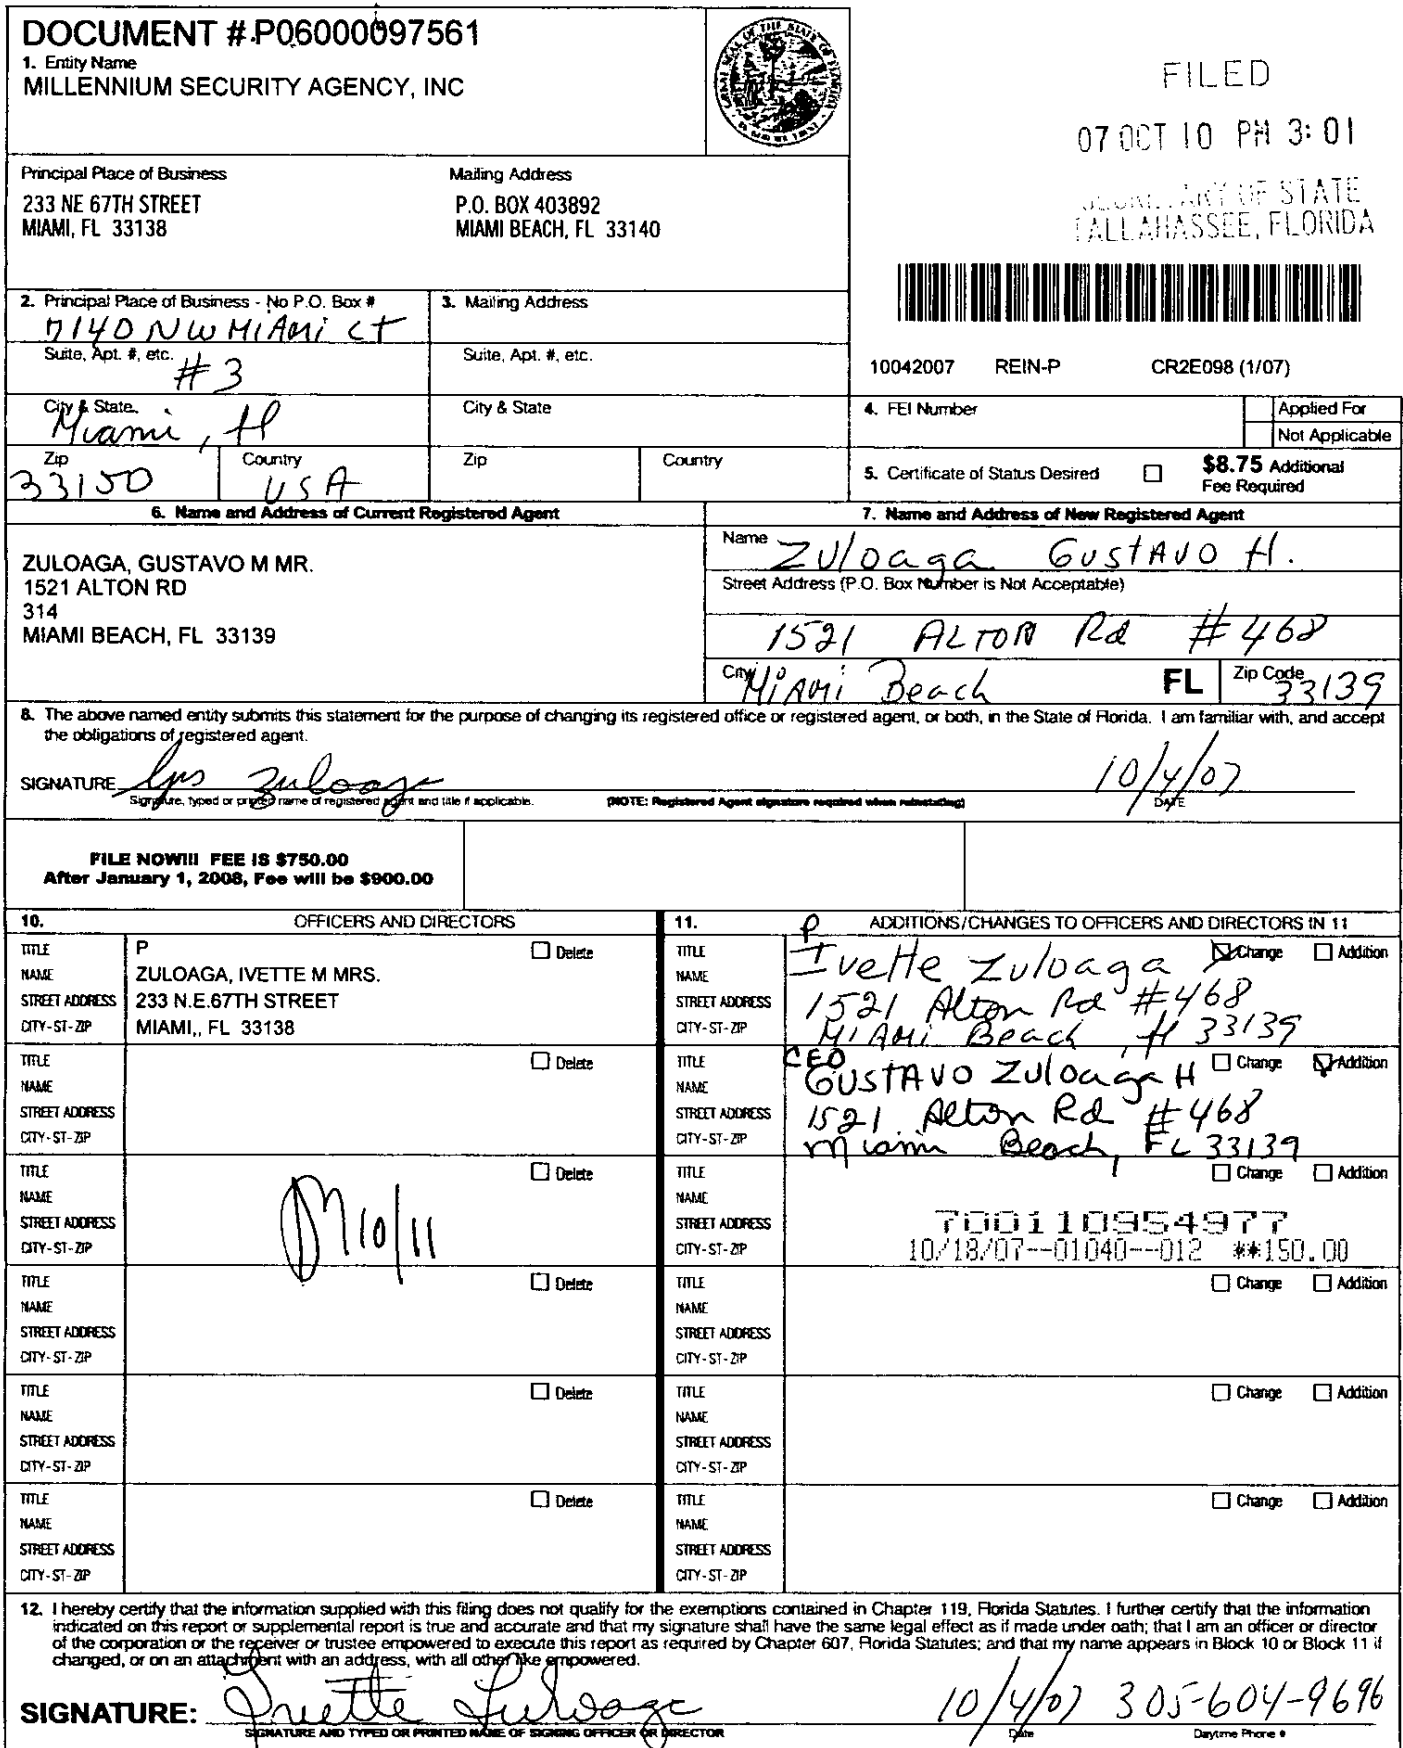 DOCUMENT # P06000097561
1. Entity Name
MILLENNIUM SECURITY AGENCY, INC
FILED
07 OCT 10 PM 3:01
SECRETARY OF STATE
TALLAHASSEE, FLORIDA
Principal Place of Business
233 NE 67TH STREET
MIAMI, FL 33138
Mailing Address
P.O. BOX 403892
MIAMI BEACH, FL 33140
2. Principal Place of Business - No P.O. Box #
7140 NW MiAMi CT
3. Mailing Address
Suite, Apt. #, etc.
#3
Suite, Apt. #, etc.
10042007 REIN-P CR2E098 (1/07)
City & State
Miami, Fl
City & State
4. FEI Number
Applied For
Not Applicable
Zip
33150
Country
USA
Zip
Country
5. Certificate of Status Desired
$8.75 Additional
Fee Required
6. Name and Address of Current Registered Agent
ZULOAGA, GUSTAVO M MR.
1521 ALTON RD
314
MIAMI BEACH, FL 33139
7. Name and Address of New Registered Agent
Name
Zuloaga GUSTAVO H.
Street Address (P.O. Box Number is Not Acceptable)
1521 ALTON Rd #468
City
MiAMi Beach
FL
Zip Code
33139
8. The above named entity submits this statement for the purpose of changing its registered office or registered agent, or both, in the State of Florida. I am familiar with, and accept
the obligations of registered agent.
SIGNATURE Zuloaga
10/4/07
Signature, typed or printed name of registered agent and title if applicable.
(NOTE: Registered Agent signature required when reinstating)
DATE
FILE NOW!!! FEE IS $750.00
After January 1, 2008, Fee will be $900.00
10. OFFICERS AND DIRECTORS
TITLE P Delete
NAME ZULOAGA, IVETTE M MRS.
STREET ADDRESS 233 N.E.67TH STREET
CITY-ST-ZIP MIAMI,, FL 33138
TITLE Delete
NAME
STREET ADDRESS
CITY-ST-ZIP
TITLE Delete
NAME
STREET ADDRESS
CITY-ST-ZIP
10/11
TITLE Delete
NAME
STREET ADDRESS
CITY-ST-ZIP
TITLE Delete
NAME
STREET ADDRESS
CITY-ST-ZIP
TITLE Delete
NAME
STREET ADDRESS
CITY-ST-ZIP
11. ADDITIONS/CHANGES TO OFFICERS AND DIRECTORS IN 11
TITLE P Change Addition
NAME Ivette Zuloaga
STREET ADDRESS 1521 Alton Rd #468
CITY-ST-ZIP MiAMi Beach, Fl 33139
TITLE CEO Change Addition
NAME GUSTAVO Zuloaga H
STREET ADDRESS 1521 Alton Rd #468
CITY-ST-ZIP Miami Beach, FL 33139
TITLE Change Addition
NAME
STREET ADDRESS 700110954977
CITY-ST-ZIP 10/18/07--01040--012 **150.00
TITLE Change Addition
NAME
STREET ADDRESS
CITY-ST-ZIP
TITLE Change Addition
NAME
STREET ADDRESS
CITY-ST-ZIP
TITLE Change Addition
NAME
STREET ADDRESS
CITY-ST-ZIP
12. I hereby certify that the information supplied with this filing does not qualify for the exemptions contained in Chapter 119, Florida Statutes. I further certify that the information
indicated on this report or supplemental report is true and accurate and that my signature shall have the same legal effect as if made under oath; that I am an officer or director
of the corporation or the receiver or trustee empowered to execute this report as required by Chapter 607, Florida Statutes; and that my name appears in Block 10 or Block 11 if
changed, or on an attachment with an address, with all other like empowered.
SIGNATURE: Ivette Zuloaga 10/4/07 305-604-9696
SIGNATURE AND TYPED OR PRINTED NAME OF SIGNING OFFICER OR DIRECTOR
Date
Daytime Phone #